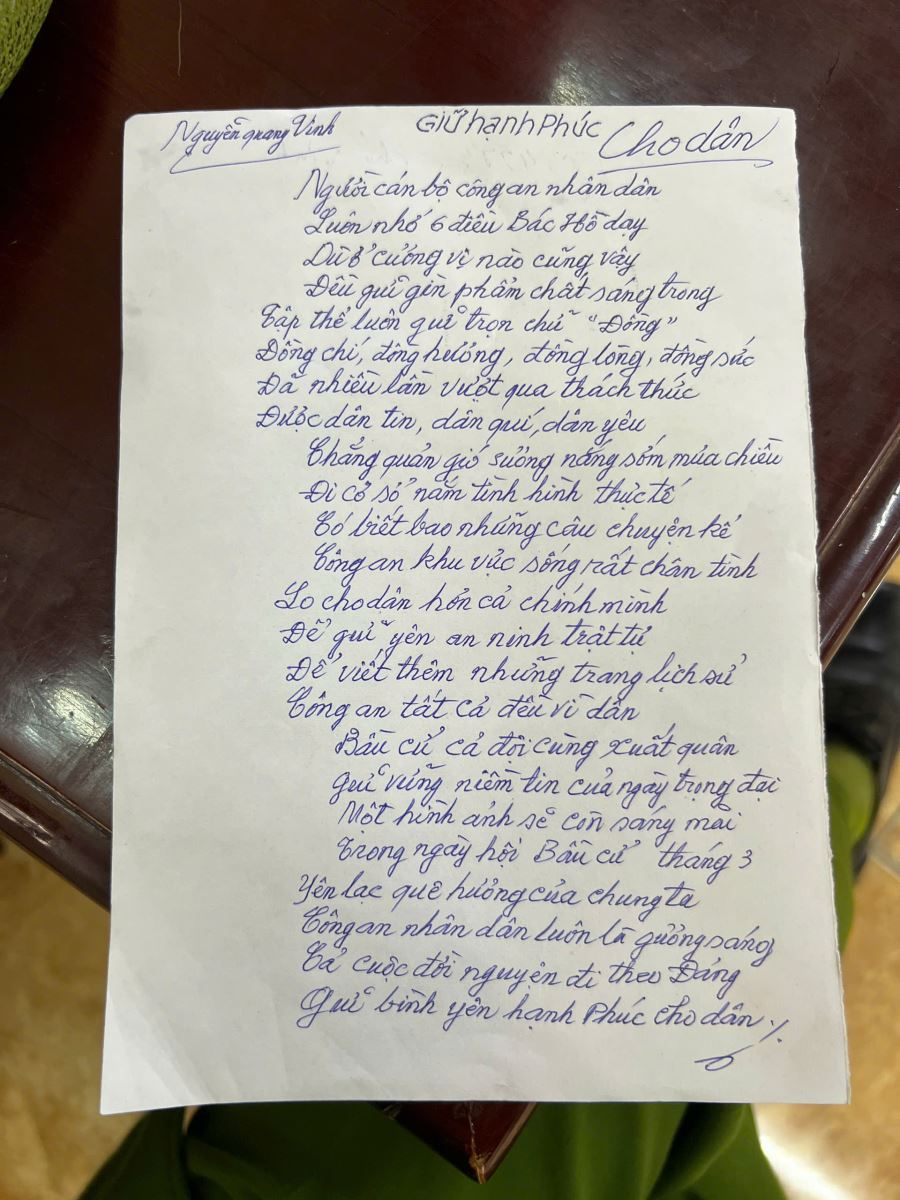 Nguyễn quang Vinh
GIỮ hạnh Phúc Cho dân
Người cán bộ công an nhân dân
Luôn nhớ 6 điều Bác Hồ dạy
Dù ở cương vị nào cũng vậy
Đều giữ gìn phẩm chất sáng trong
Tập thể luôn giữ trọn chữ "Đồng"
Đồng chí, đồng hương, đồng lòng, đồng sức
Đã nhiều lần vượt qua thách thức
Được dân tin, dân quí, dân yêu
Chẳng quản gió sương nắng sớm mưa chiều
Đi cơ sở nắm tình hình thực tế
Có biết bao những câu chuyện kể
Công an khu vực sống rất chân tình
Lo cho dân hơn cả chính mình
Để giữ yên an ninh trật tự
Để viết thêm những trang lịch sử
Công an tất cả đều vì dân
Bầu cử cả đội cùng xuất quân
Giữ vững niềm tin của ngày trọng đại
Một hình ảnh sẽ còn sáng mãi
Trong ngày hội Bầu cử tháng 3
Yên lạc quê hương của chúng ta
Công an nhân dân luôn là gương sáng
Cả cuộc đời nguyện đi theo Đảng
Giữ bình yên hạnh Phúc cho dân ./.